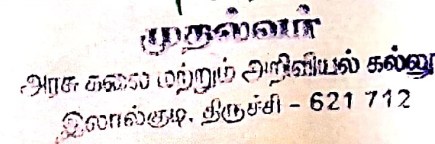 முதல்வர்
அரசு கலை மற்றும் அறிவியல் கல்லூ
இலால்குடி, திருச்சி - 621 712